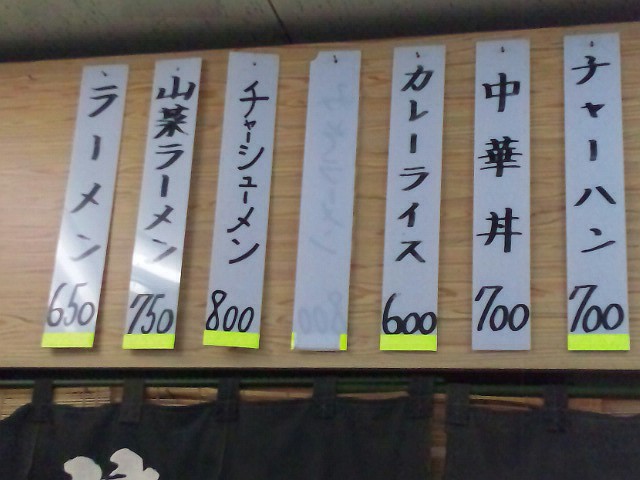 ラーメン
650
山菜ラーメン
750
チャーシューメン
800
カレーライス
600
中華丼
700
チャーハン
700